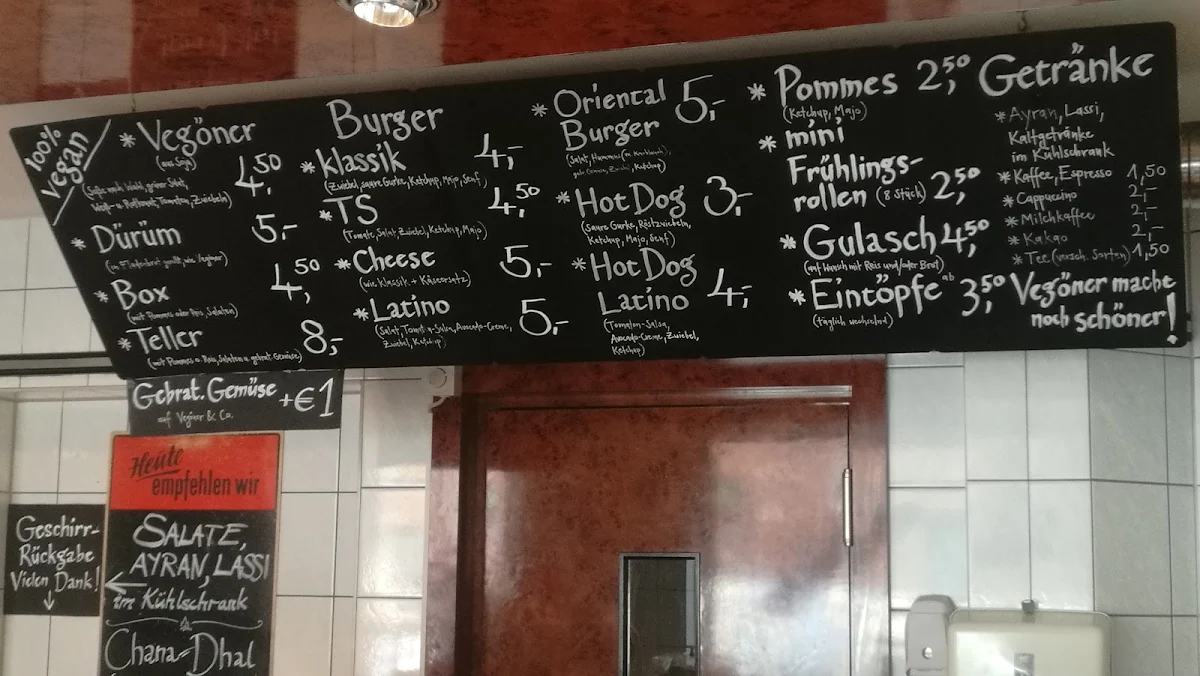 100%
vegan
* Vegöner 4,50
(aus Soja)
(Soße nach Wahl, grüner Salat,
Weiß- u. Rotkraut, Tomaten, Zwiebeln)
* Dürüm 5,-
(im Fladenbrot gerollt, wie Vegöner)
* Box 4,50
(mit Pommes oder Reis, Salaten)
* Teller 8,-
(mit Pommes o. Reis, Salaten u. gebrat. Gemüse)
Burger
* Klassik 4,-
(Zwiebel, saure Gurke, Ketchup, Majo, Senf)
* TS 4,50
(Tomate, Salat, Zwiebel, Ketchup, Majo)
* Cheese 5,-
(wie Klassik + Käseersatz)
* Latino 5,-
(Salat, Tomat-Salsa, Avocado-Creme,
Zwiebel, Ketchup)
* Oriental 5,-
Burger
(Salat, Hummus
Zwiebel, Ketchup)
* Hot Dog 3,-
(Saure Gurke, Röstzwiebeln,
Ketchup, Majo, Senf)
* Hot Dog
Latino 4,-
(Tomaten-Salsa,
Avocado-Creme, Zwiebel,
Ketchup)
* Pommes 2,50
(Ketchup, Majo)
* mini
Frühlings-
rollen (8 Stück) 2,50
* Gulasch 4,50
(auf Wunsch mit Reis und/oder Brot)
* Eintöpfe ab 3,50
(täglich wechselnd)
Getränke
* Ayran, Lassi,
Kaltgetränke
im Kühlschrank
* Kaffee, Espresso 1,50
* Cappuccino 2,-
* Milchkaffee 2,-
* Kakao 2,-
* Tee (versch. Sorten) 1,50
Vegöner mache
noch schöner!
Gebrat. Gemüse +€1
auf Vegöner & Co.
Heute
empfehlen wir
SALATE,
AYRAN, LASSI
im Kühlschrank
Chana-Dhal
Geschirr-
Rückgabe
Vielen Dank!